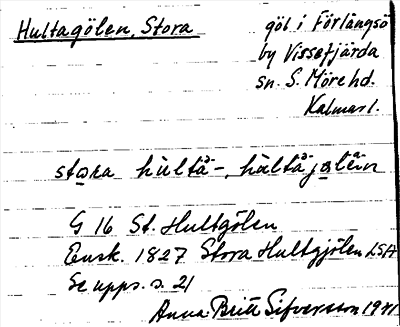 Hultagölen, Stora
göl i Förlångsö
by Vissefjärda
sn. S. Möre hd.
Kalmar l.
stora hùlta-, hùltajølän
G 16 St. Hultgölen
Ensk. 1827 Stora Hultgjölen LSA
Se upps. s. 21
Anna-Britt Sifversson 1941